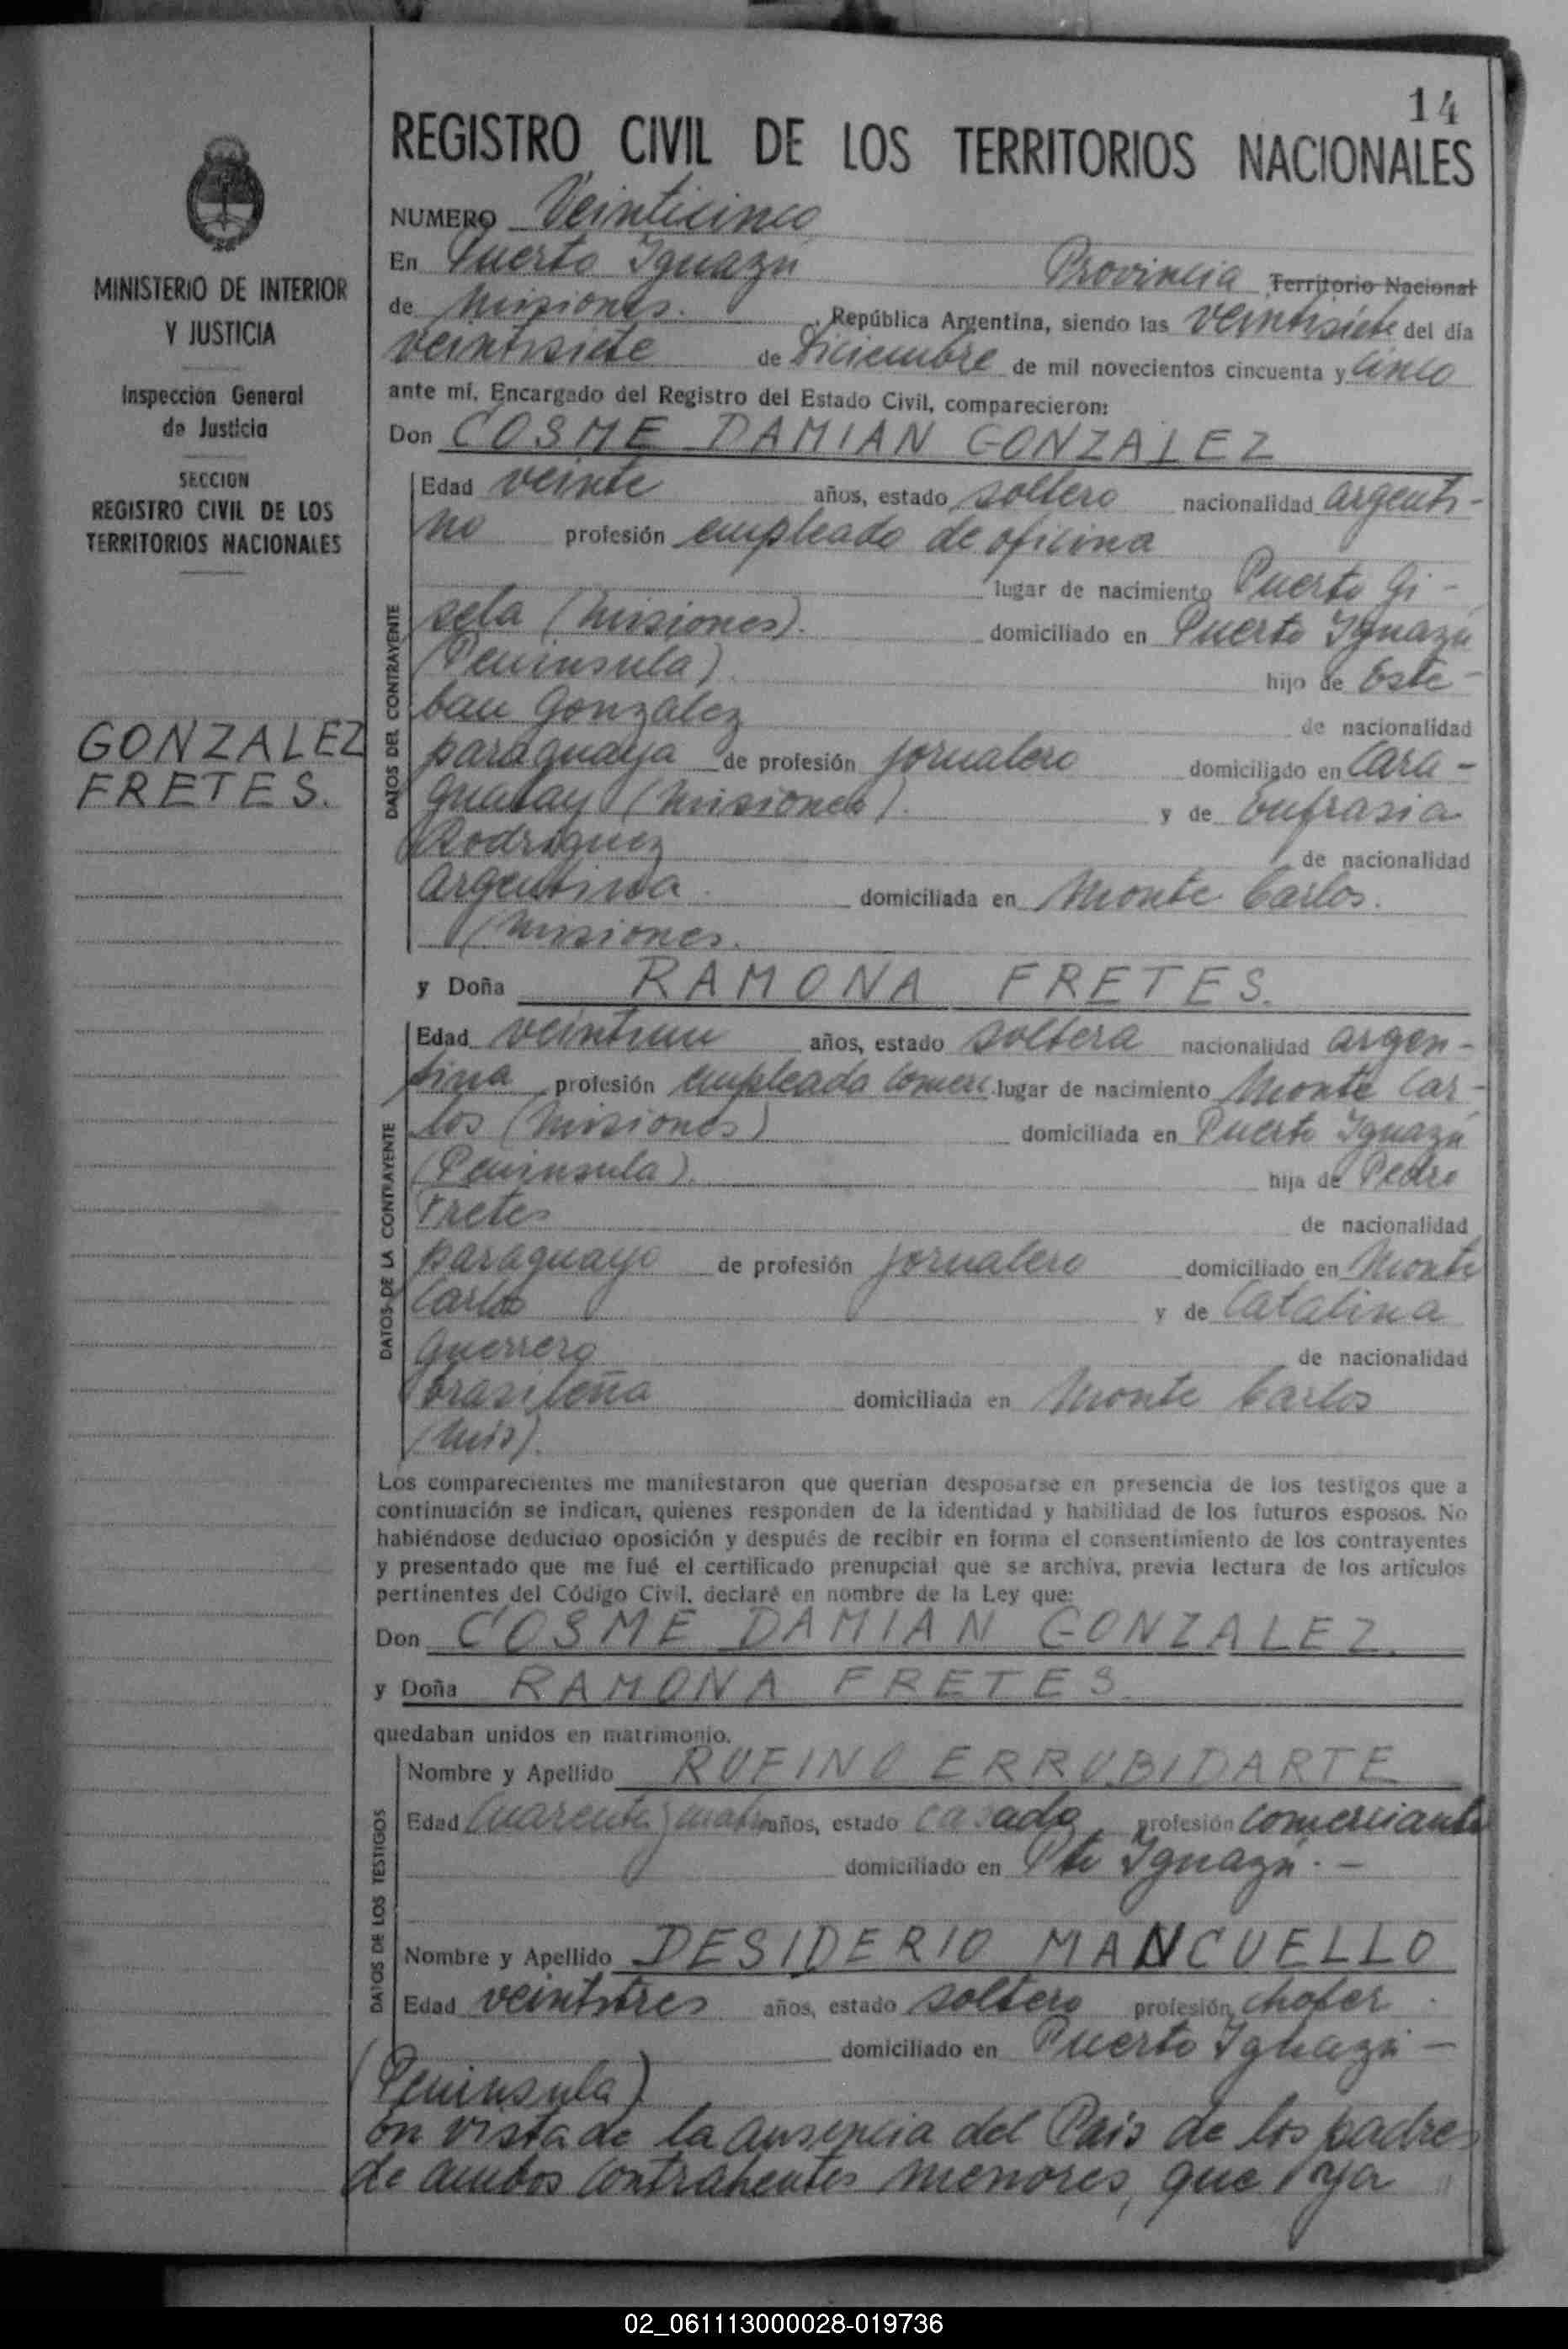 14
REGISTRO CIVIL DE LOS TERRITORIOS NACIONALES
MINISTERIO DE INTERIOR
Y JUSTICIA
Inspección General
de Justicia
SECCION
REGISTRO CIVIL DE LOS
TERRITORIOS NACIONALES
GONZALEZ
FRETES.
NUMERO Veinticinco
En Puerto Iguazú Provincia Territorio Nacional
de Misiones. República Argentina, siendo las veintisiete del día
veintisiete de Diciembre de mil novecientos cincuenta y cinco
ante mí, Encargado del Registro del Estado Civil, comparecieron:
Don COSME DAMIAN GONZALEZ
DATOS DEL CONTRAYENTE
Edad veinte años, estado soltero nacionalidad argenti-
no profesión empleado de oficina
lugar de nacimiento Puerto Gi-
sela (Misiones). domiciliado en Puerto Iguazú
(Peninsula) hijo de Este-
ban Gonzalez de nacionalidad
paraguaya de profesión jornalero domiciliado en Cara-
guatay (Misiones). y de Eufrasia
Rodriguez de nacionalidad
argentina domiciliada en Monte Carlos.
(Misiones.
y Doña RAMONA FRETES.
DATOS DE LA CONTRAYENTE
Edad veintiun años, estado soltera nacionalidad argen-
tina profesión empleada comerc. lugar de nacimiento Monte Car-
los (Misiones) domiciliada en Puerto Iguazú
(Peninsula). hija de Pedro
Fretes de nacionalidad
paraguayo de profesión jornalero domiciliado en Monte
Carlos y de Catalina
Guerrero de nacionalidad
brasileña domiciliada en Monte Carlos
(Mis).
Los comparecientes me manifestaron que querían desposarse en presencia de los testigos que a
continuación se indican, quienes responden de la identidad y habilidad de los futuros esposos. No
habiéndose deducido oposición y después de recibir en forma el consentimiento de los contrayentes
y presentado que me fué el certificado prenupcial que se archiva, previa lectura de los artículos
pertinentes del Código Civil, declaré en nombre de la Ley que:
Don COSME DAMIAN GONZALEZ.
y Doña RAMONA FRETES.
quedaban unidos en matrimonio.
DATOS DE LOS TESTIGOS
Nombre y Apellido RUFINO ERRUBIDARTE
Edad Cuarenta y cuatro años, estado casado profesión comerciante
domiciliado en Pto Iguazú.-
Nombre y Apellido DESIDERIO MANCUELLO
Edad veintitres años, estado soltero profesión chofer.
domiciliado en Puerto Iguazú-
(Peninsula)
En vista de la ausencia del Pais de los padres
de ambos contrahentes menores, que ya
02_061113000028-019736